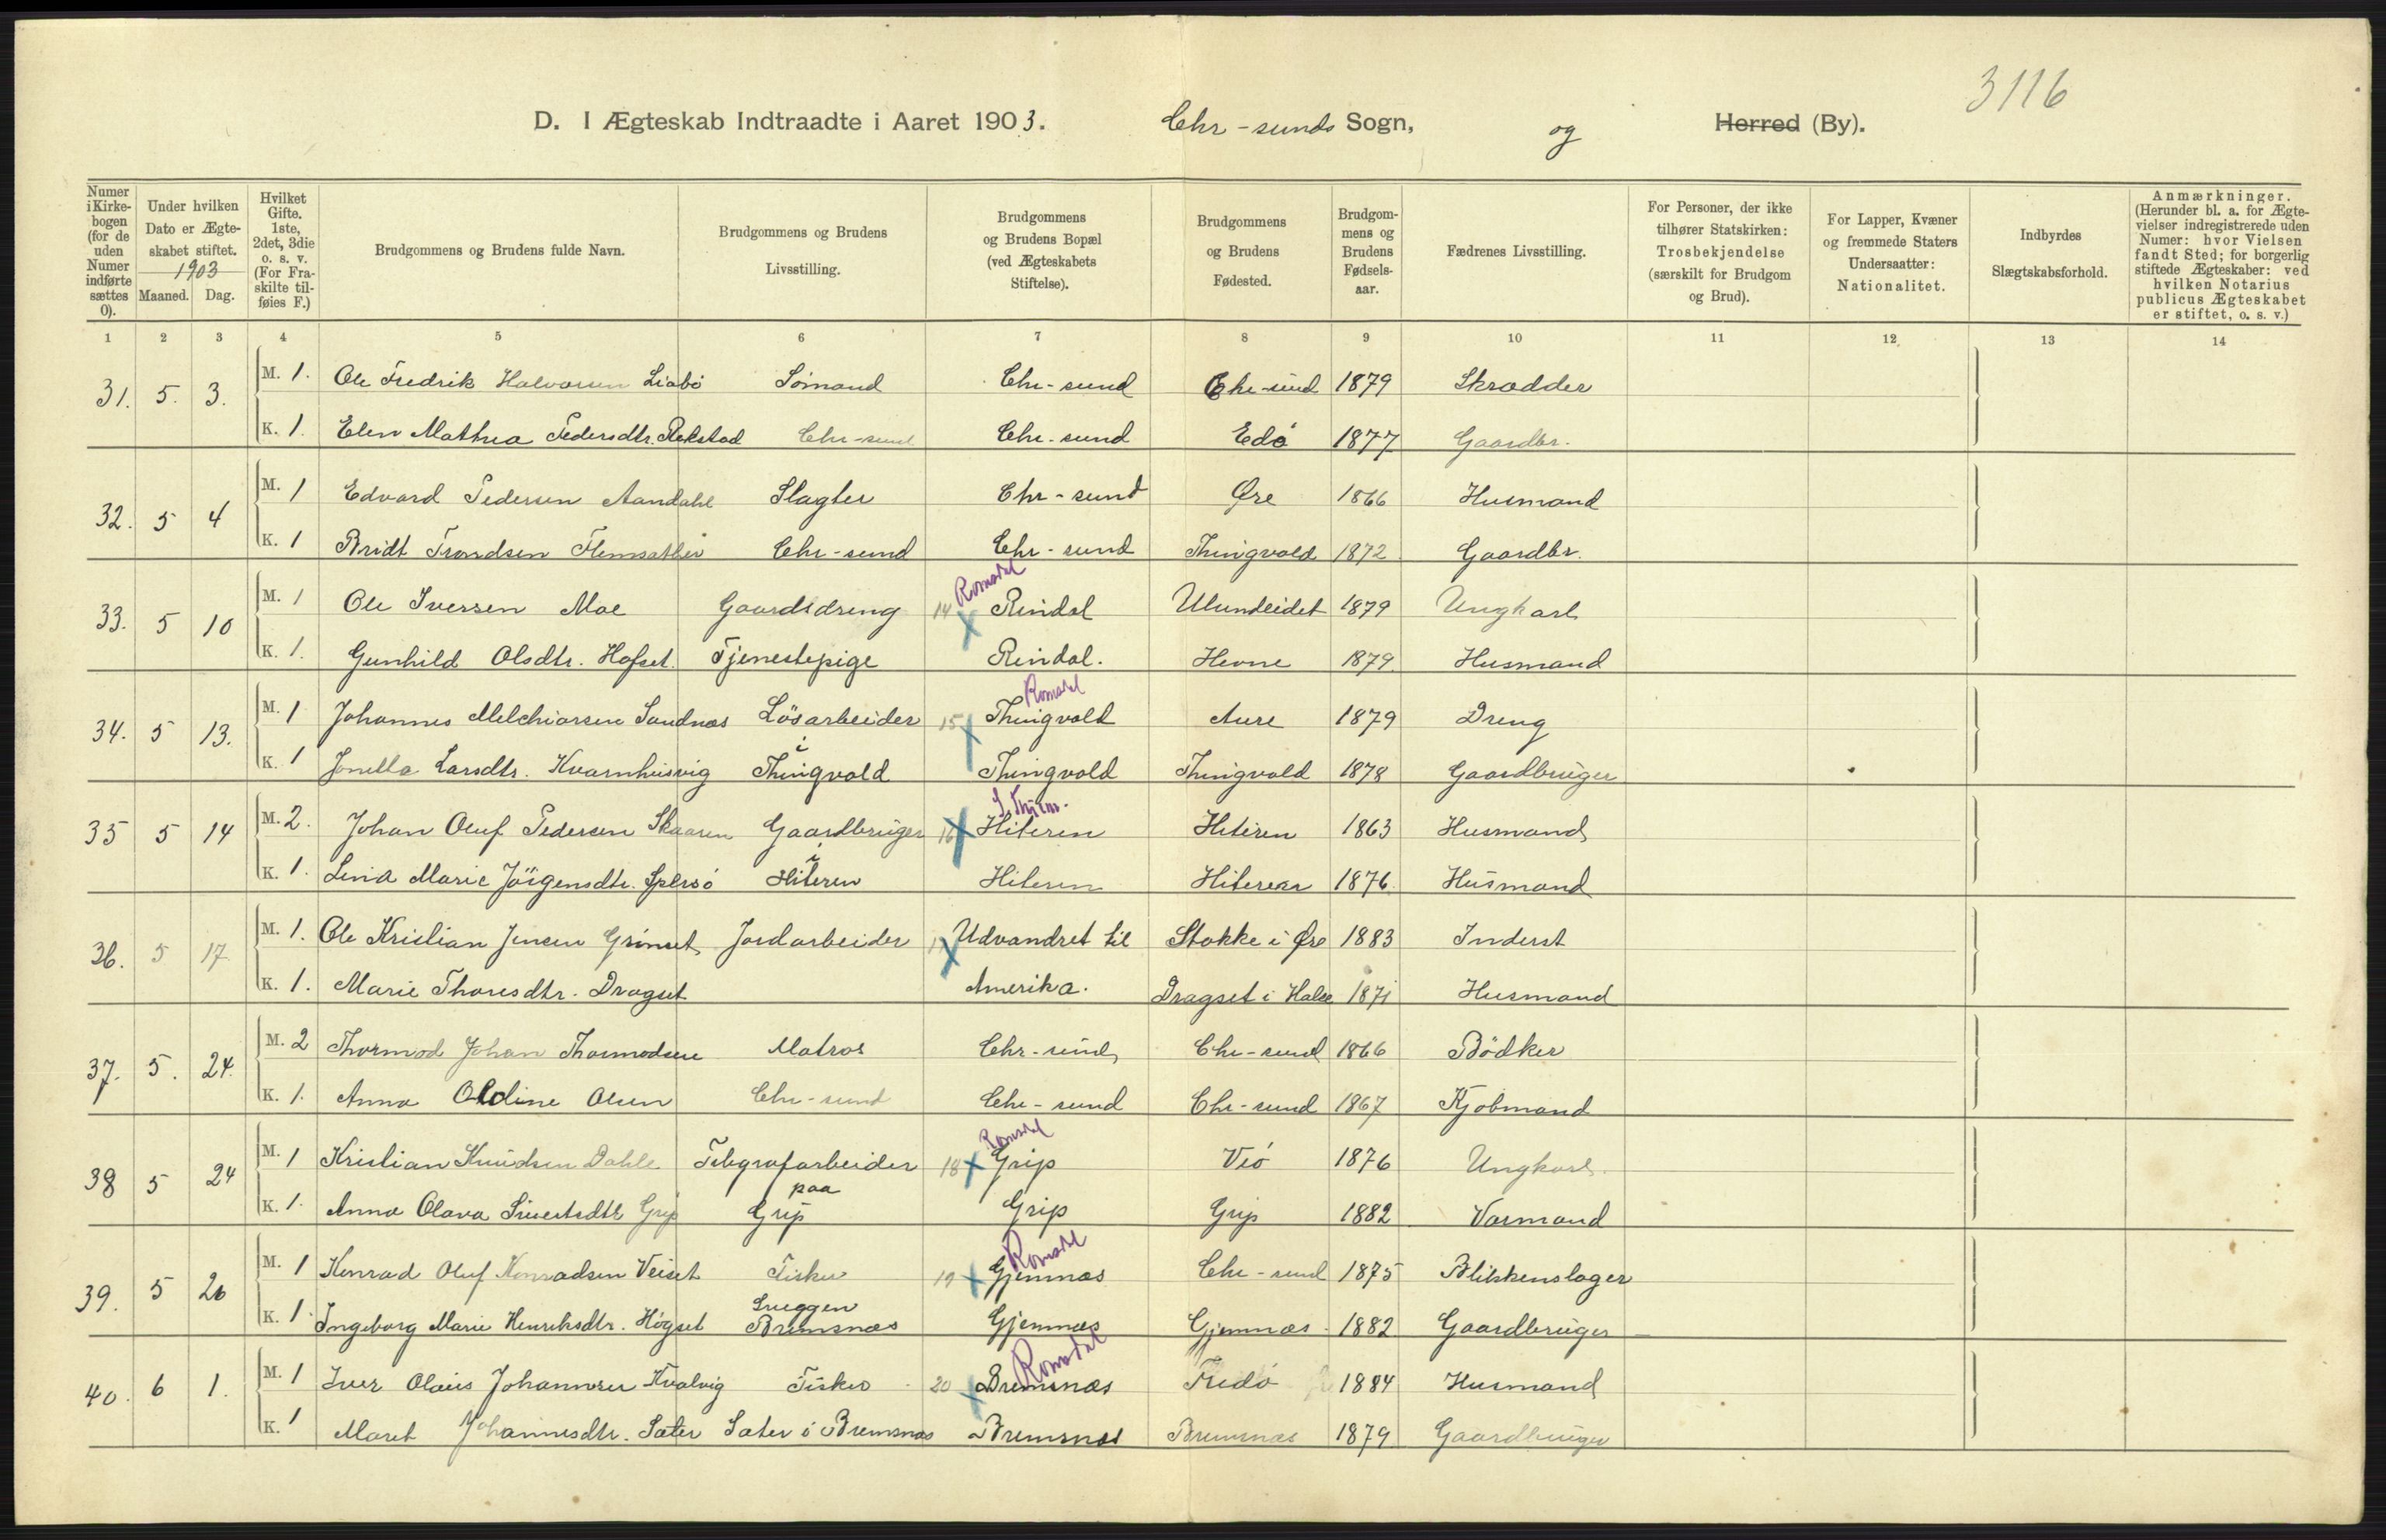 3116
D. I Ægteskab Indtraadte i Aaret 1903. Chr-sunds Sogn, og Herred (By).
Numer i Kirkebogen (for de uden Numer indførte sættes 0). Under hvilken Dato er Ægteskabet stiftet. 1903 Maaned. Dag. Hvilket Gifte. 1ste, 2det, 3die o. s. v. (For Fraskilte tilføies F.) Brudgommens og Brudens fulde Navn. Brudgommens og Brudens Livsstilling. Brudgommens og Brudens Bopæl (ved Ægteskabets Stiftelse). Brudgommens og Brudens Fødested. Brudgommens og Brudens Fødselsaar. Fædrenes Livsstilling. For Personer, der ikke tilhører Statskirken: Trosbekjendelse (særskilt for Brudgom og Brud). For Lapper, Kvæner og fremmede Staters Undersaatter: Nationalitet. Indbyrdes Slægtskabsforhold. Anmærkninger. (Herunder bl. a. for Ægtevielser indregistrerede uden Numer: hvor Vielsen fandt Sted; for borgerlig stiftede Ægteskaber: ved hvilken Notarius publicus Ægteskabet er stiftet, o. s. v.)
1 2 3 4 5 6 7 8 9 10 11 12 13 14
31. 5. 3. M. 1. Ole Fredrik Halvorsen Liabö Sömand Chr-sund Chr-sund 1879 Skrædder
K. 1. Elen Mathea Pedersdtr. Rekstad Chr-sund Chr-sund Edö 1877 Gaardbr.
32. 5 4 M. 1 Edvard Pedersen Aandahl Slagter Chr-sund Øre 1866 Husmand
K. 1 Bridt Trondsen Chr-sund Chr-sund Thingvold 1872 Gaardbr.
33. 5 10 M. 1 Ole Iversen Moe Gaardsdreng 14 Romsdal Rindal 1879 Ungkarl
K. 1. Gunhild Olsdtr. Hofset. Tjenestepige Rindal. Hevne 1879. Husmand
34. 5 13. M. 1 Johannes Melchiorsen Sandnæs Lösarbeider 15 Romsdal Thingvold Aure 1879 Dreng
K. 1 Jonetta Larsdtr. Kvarnhusvig i Thingvold Thingvold Thingvold 1878 Gaardbruger
35 5 14 M. 2. Johan Oluf Pedersen Skaaren Gaardbruger 16 S. Thjem. Hiteren Hiteren 1863 Husmand
K. 1. Lina Marie Jörgensdtr. i Hiteren Hiteren Hiteren 1876. Husmand
36. 5 17 M. 1. Ole Kristian Jensen Grönset Jordarbeider 17 Udvandret til Stokke i Øre 1883 Inderst
K. 1. Marie Thoresdtr. Dragset Amerika. Dragset i Halse 1871 Husmand
37. 5. 24. M. 2 Thormod Johan Thormodsen Matros Chr-sund Chr-sund 1866 Bödker
K. 1. Anna Oldine Olsen Chr-sund Chr-sund Chr-sund 1867 Kjöbmand
38 5 24 M. 1 Kristian Knudsen Dahle Telegrafarbeider 18 Romsdal Grip Veö 1876 Ungkarl.
K. 1. Anna Olava Sivertsdtr Grip paa Grip Grip Grip 1882 Varmand
39. 5 26 M. 1 Konrad Oluf Konradsen Veiset Fisker 19 Romsdal Gjemnæs Chr-sund 1875 Blikkenslager
K. 1. Ingeborg Marie Henriksdtr. Högset Sveggen Bremsnæs Gjemnæs Gjemnæs 1882 Gaardbruger
40. 6 1. M. 1 Iver Olaus Johannesen Kvalvig Fisker 20 Romsdal Bremsnæs Fredö 1884 Husmand
K. 1 Maret Johannesdtr. Sæter Sæter i Bremsnæs Bremsnæs Bremsnæs 1879 Gaardbruger